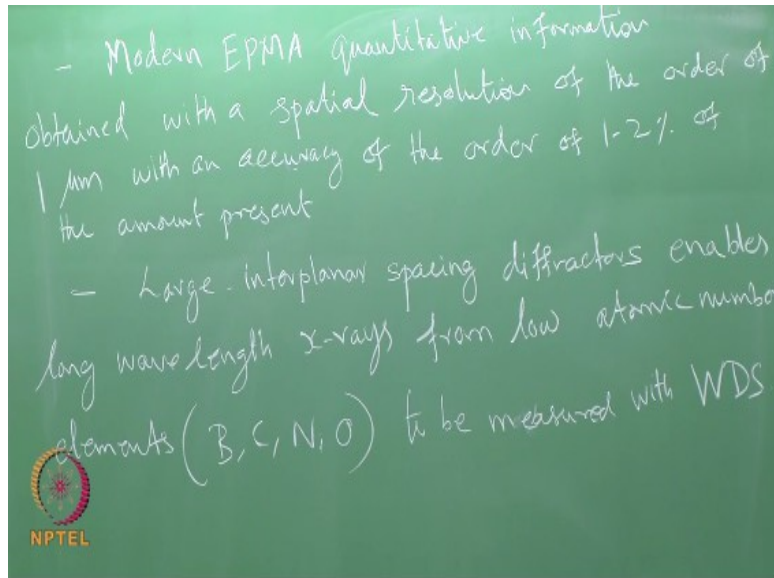 - Modern EPMA quantitative information
obtained with a spatial resolution of the order of
1 µm with an accuracy of the order of 1-2% of
the amount present
- Large-interplanar spacing diffractors enables
long wavelength x-rays from low atomic number
elements (B, C, N, O) to be measured with WDS
NPTEL